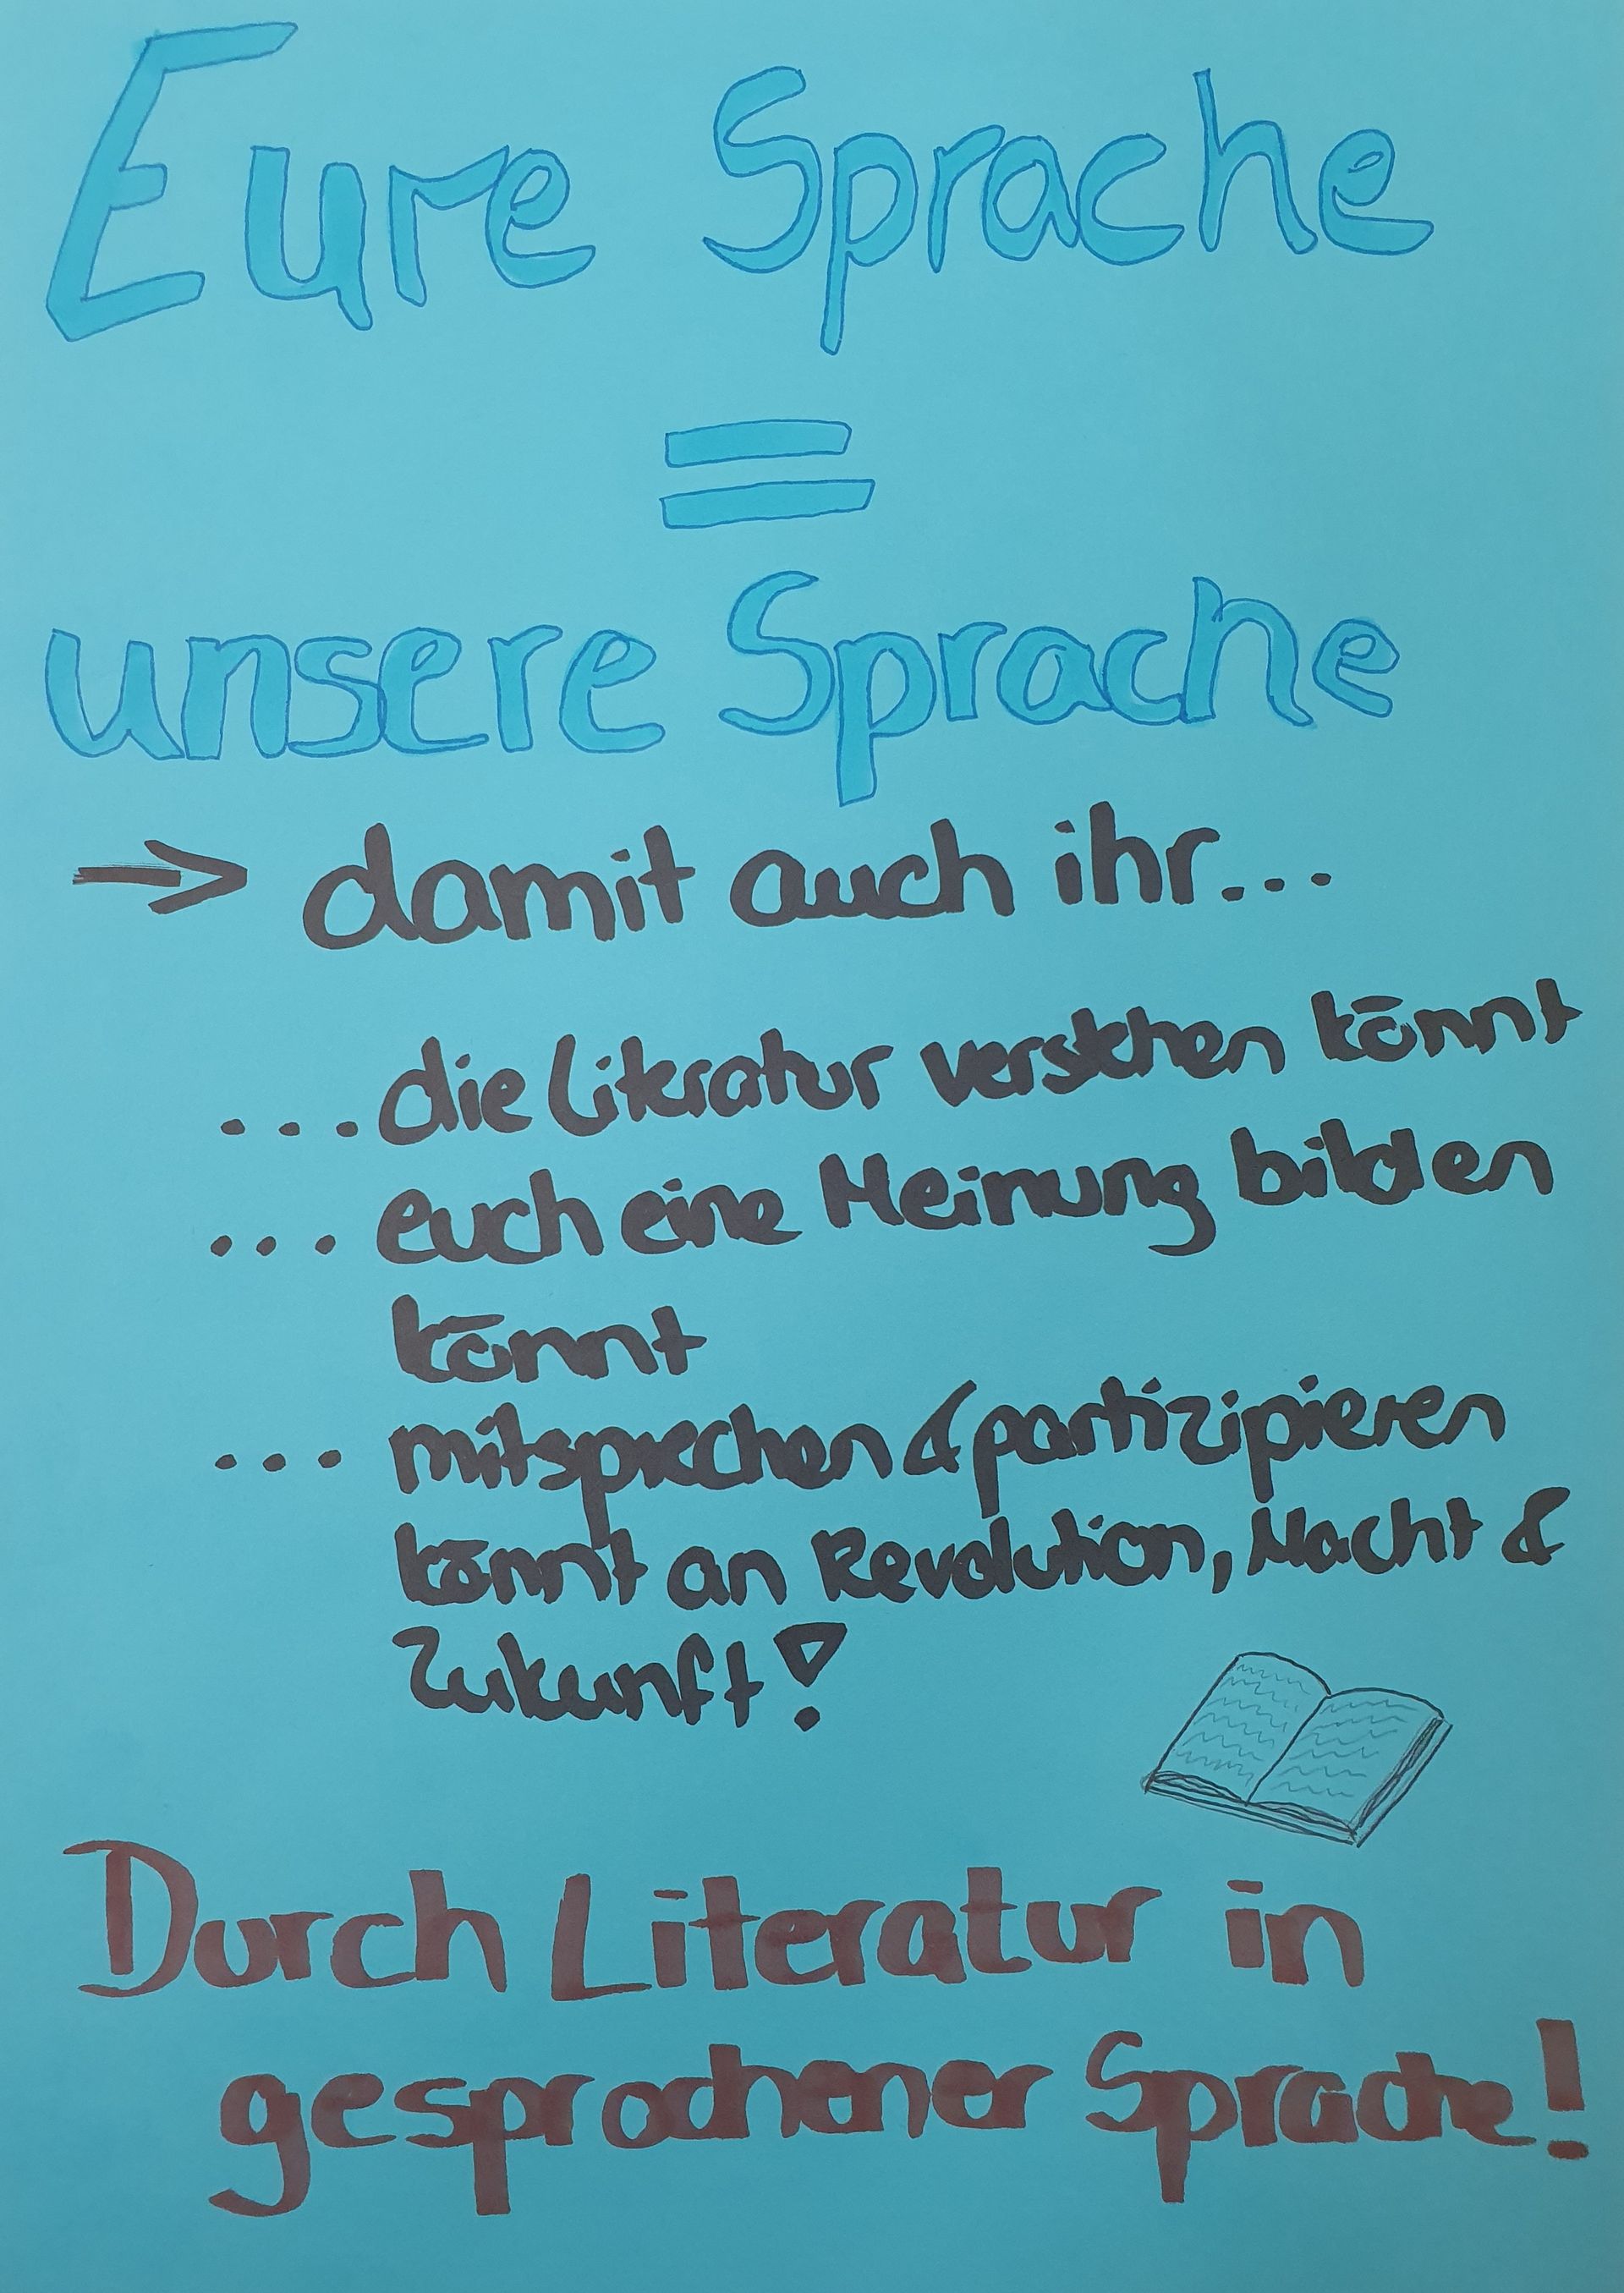 Eure Sprache
=
unsere Sprache
→ damit auch ihr...
...die Literatur verstehen könnt
... euch eine Meinung bilden
könnt
... mitsprechen & partizipieren
könnt an Revolution, Macht &
Zukunft!
Durch Literatur in
gesprochener Sprache!